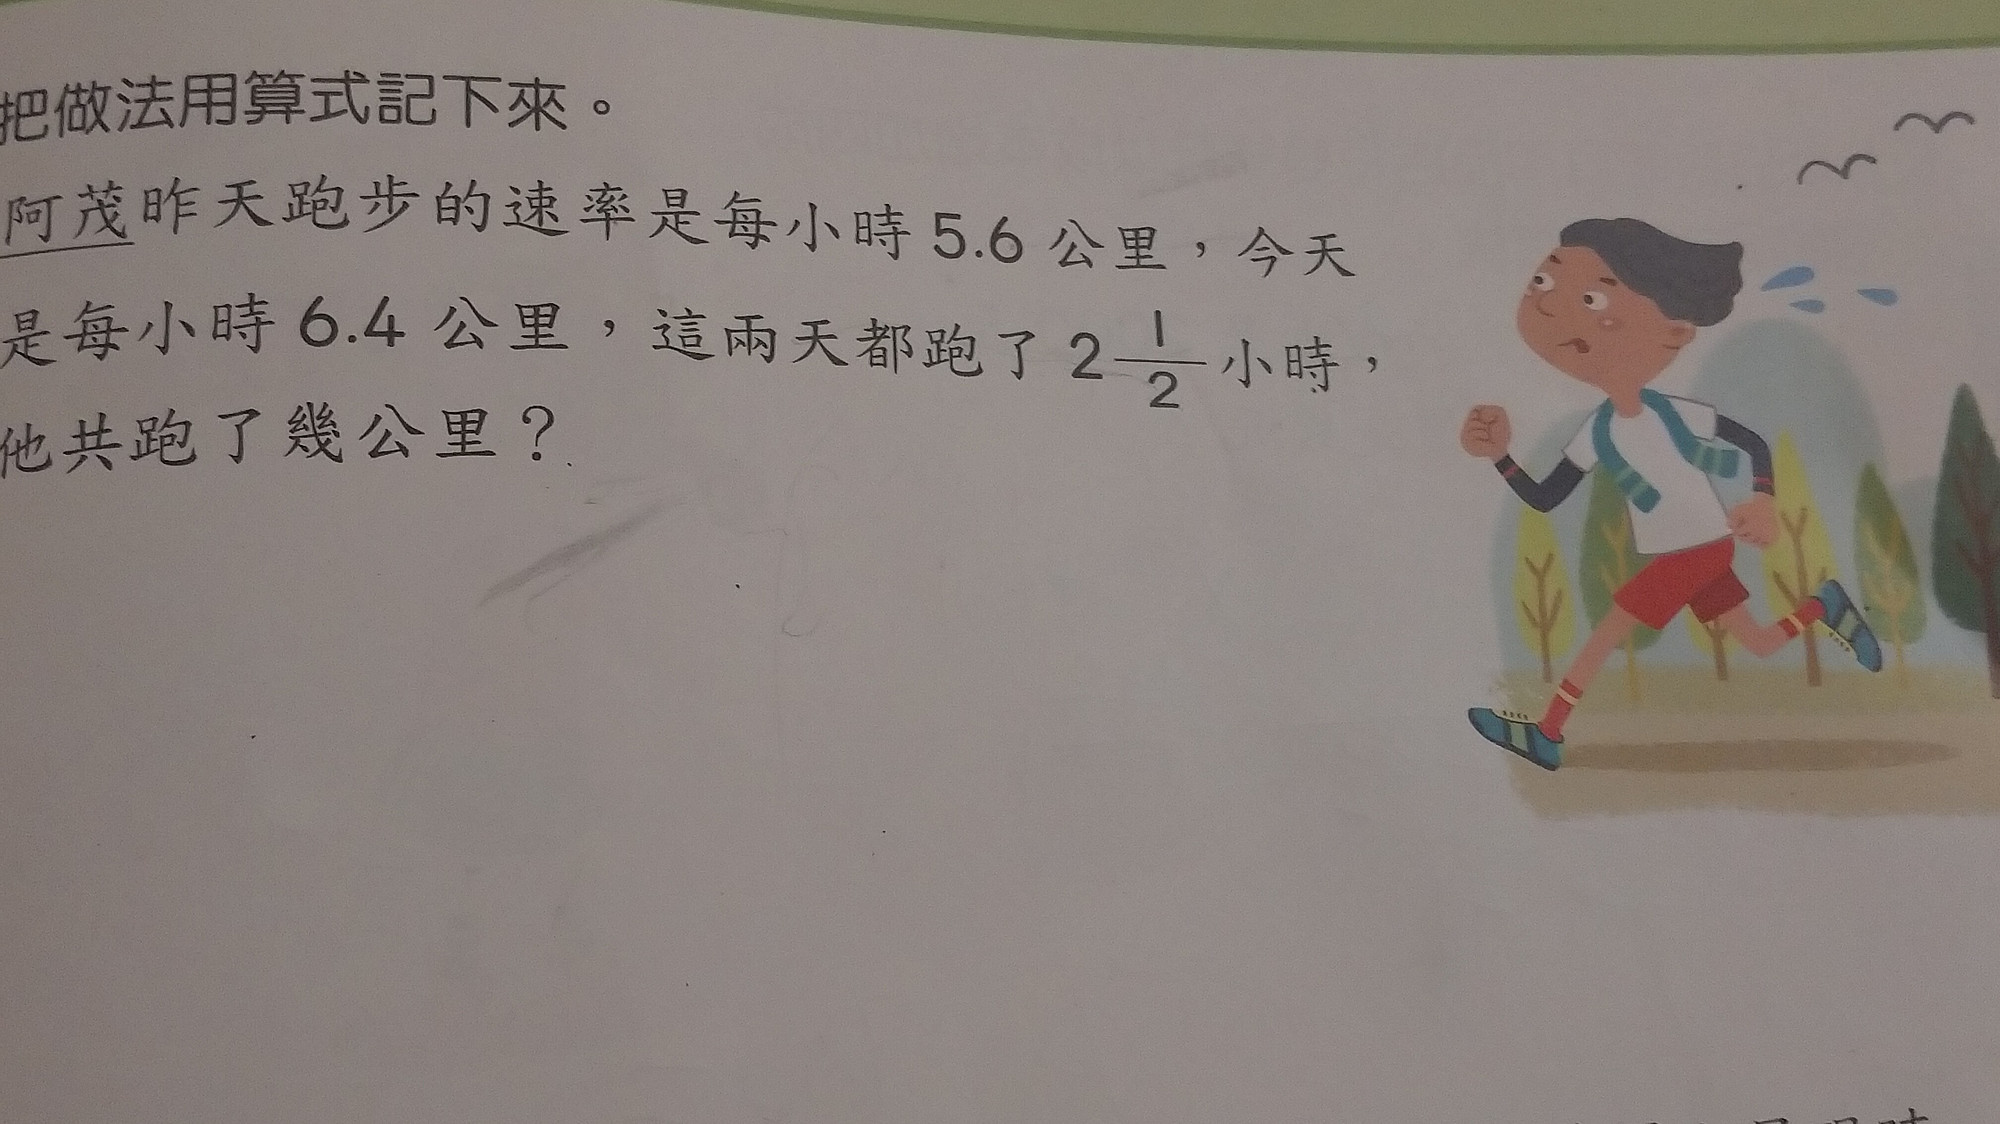 把做法用算式記下來。
阿茂昨天跑步的速率是每小時 5.6 公里，今天
是每小時 6.4 公里，這兩天都跑了 2 1/2 小時，
他共跑了幾公里？